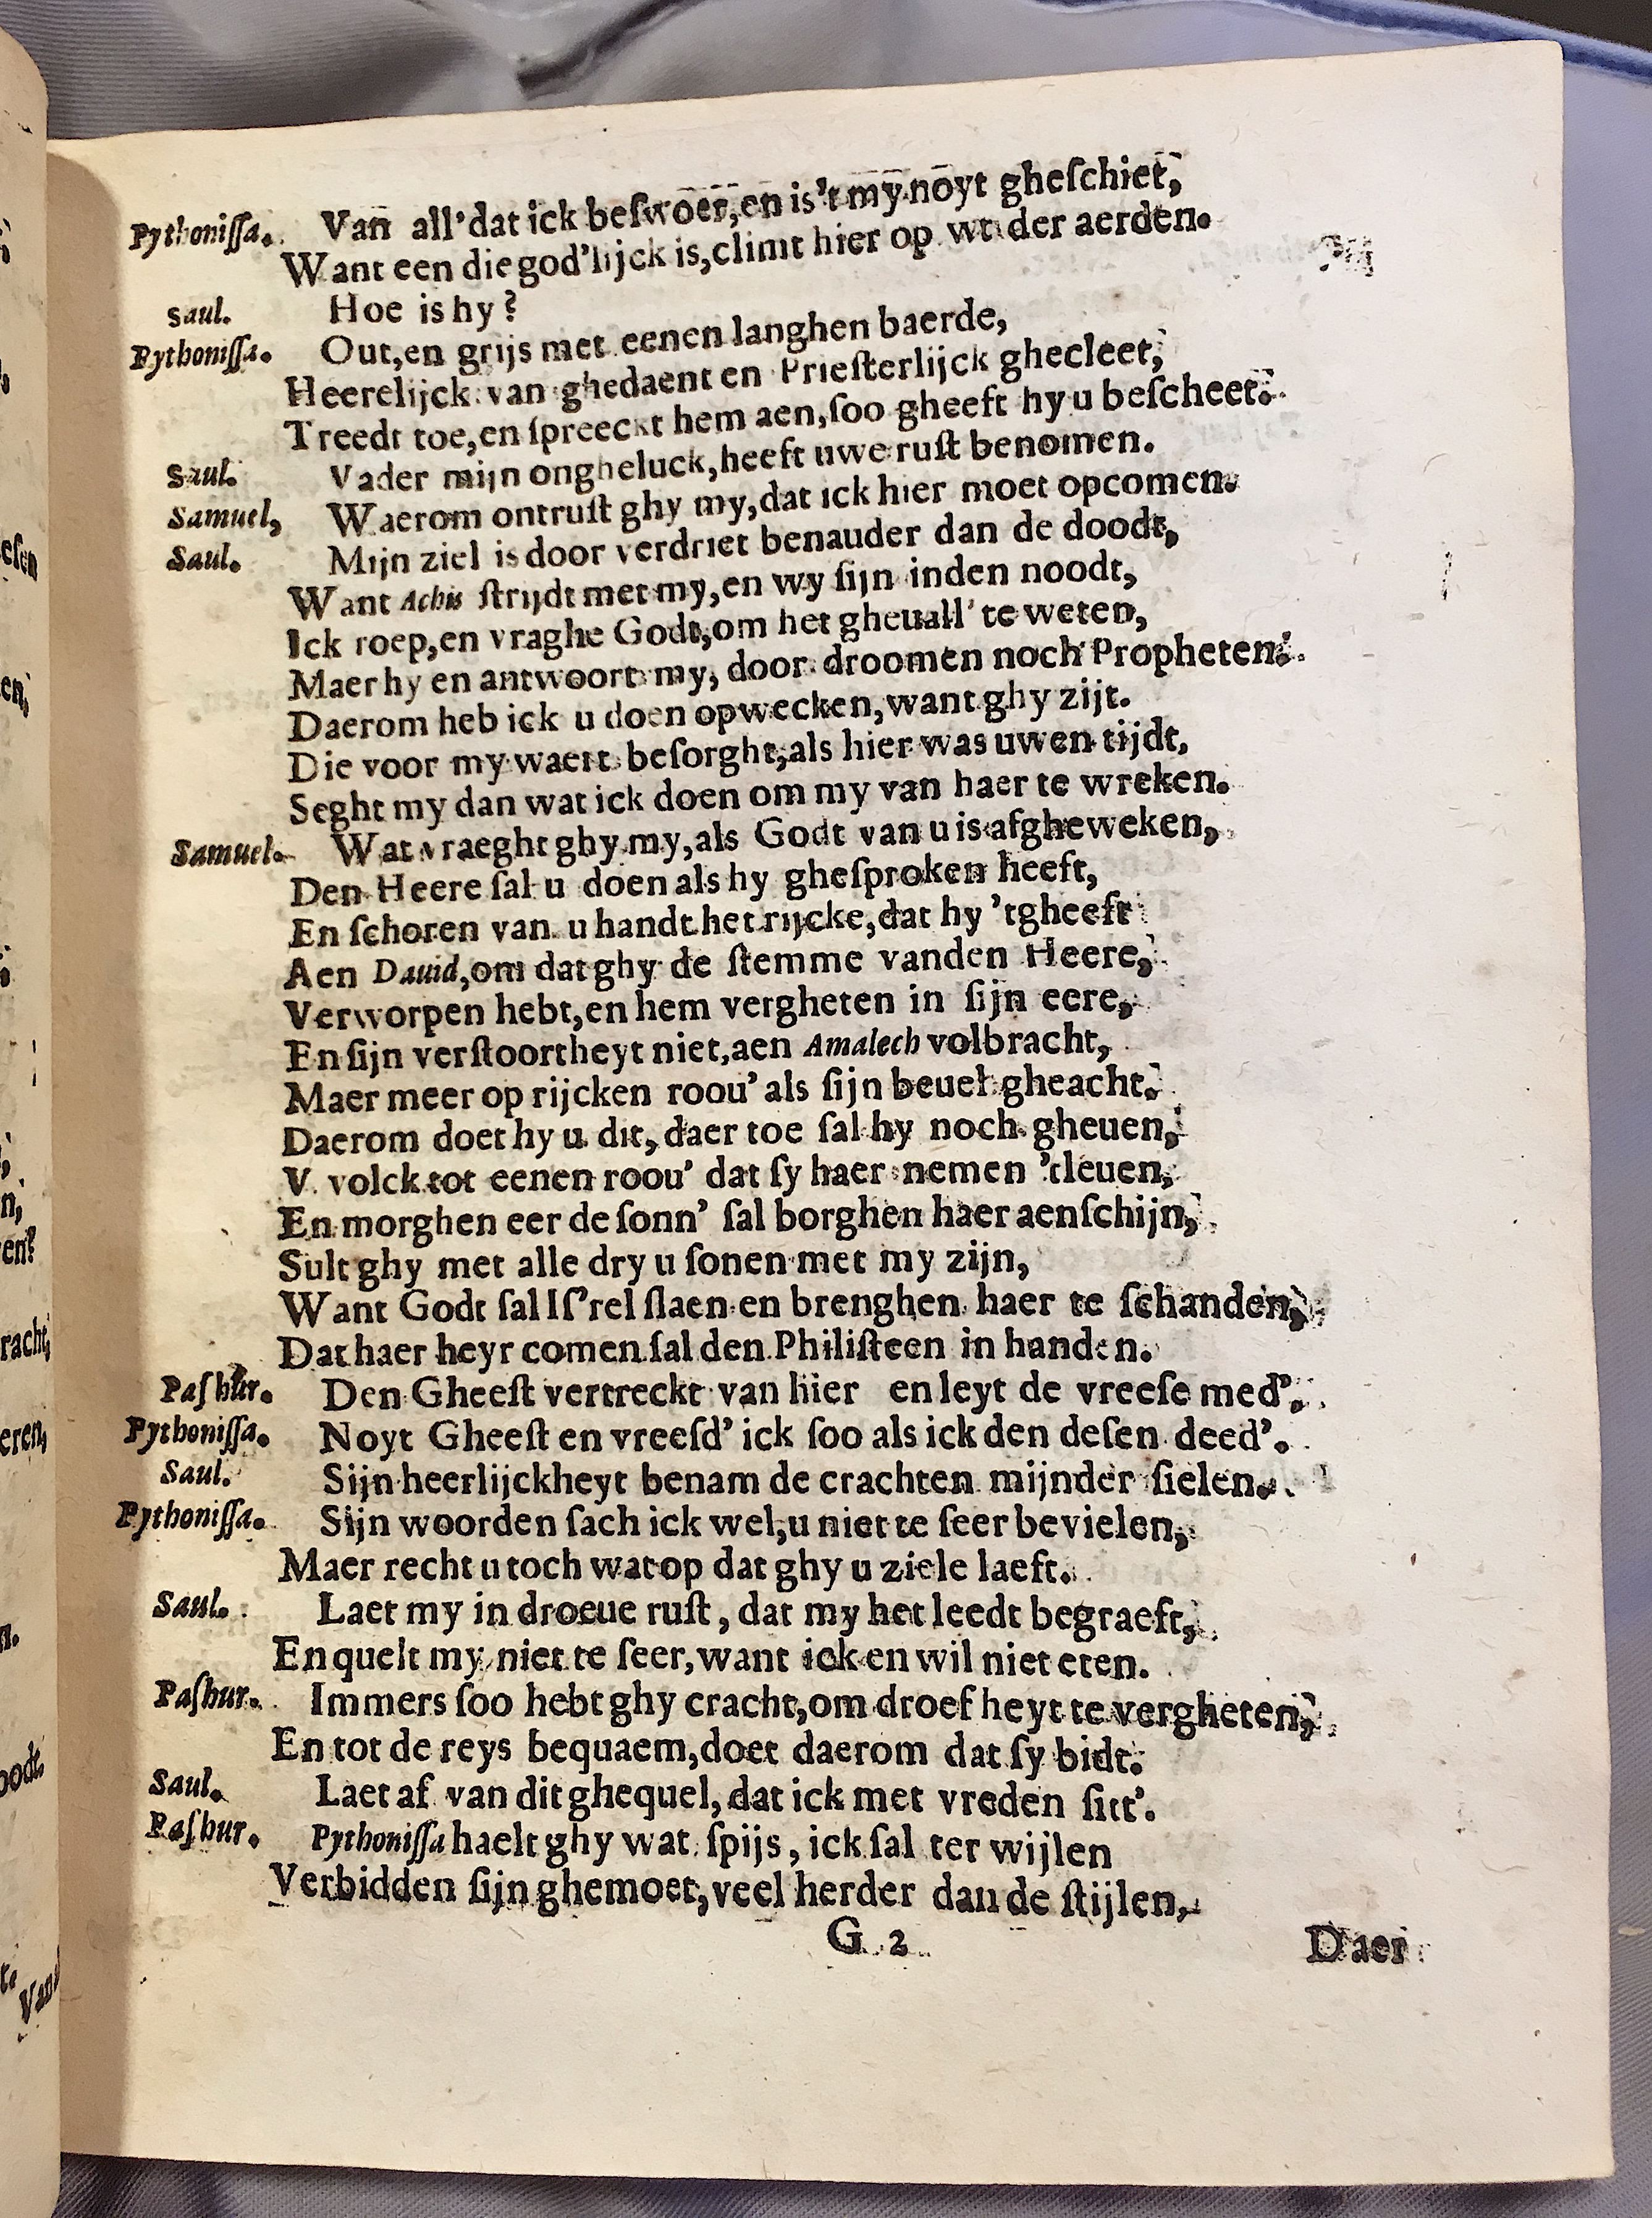 Pythoniſſa. Van all' dat ick beſwoer, en is't my noyt gheſchiet,
Want een die god'lijck is, climt hier op wt der aerden.
Saul. Hoe is hy?
Pythoniſſa. Out, en grijs met eenen langhen baerde,
Heerelijck van ghedaent en Prieſterlijck ghecleet,
Treedt toe, en ſpreeckt hem aen, ſoo gheeft hy u beſcheet.
Saul. Vader mijn ongheluck, heeft uwe ruſt benomen.
Samuel, Waerom ontruſt ghy my, dat ick hier moet opcomen.
Saul. Mijn ziel is door verdriet benauder dan de doodt,
Want Achis ſtrijdt met my, en wy ſijn inden noodt,
Ick roep, en vraghe Godt, om het gheuall' te weten,
Maer hy en antwoort my, door droomen noch Propheten.
Daerom heb ick u doen opwecken, want ghy zijt.
Die voor my waert beſorght, als hier was uwen tijdt,
Seght my dan wat ick doen om my van haer te wreken.
Samuel. Wat vraeght ghy my, als Godt van u is afgheweken,
Den Heere ſal u doen als hy gheſproken heeft,
En ſchoren van u handt het rijcke, dat hy 'tgheeft
Aen Dauid, om dat ghy de ſtemme vanden Heere,
Verworpen hebt, en hem vergheten in ſijn eere,
En ſijn verſtoortheyt niet, aen Amalech volbracht,
Maer meer op rijcken roou' als ſijn beuel gheacht.
Daerom doet hy u dit, daer toe ſal hy noch gheuen,
V volck tot eenen roou' dat ſy haer nemen 'tleuen,
En morghen eer de ſonn' ſal borghen haer aenſchijn,
Sult ghy met alle dry u ſonen met my zijn,
Want Godt ſal Iſ'rel ſlaen en brenghen haer te ſchanden,
Dat haer heyr comen ſal den Philiſteen in handen.
Paſhur. Den Gheeſt vertreckt van hier en leyt de vreeſe med'.
Pythoniſſa. Noyt Gheeſt en vreeſd' ick ſoo als ick den deſen deed'.
Saul. Sijn heerlijckheyt benam de crachten mijnder ſielen.
Pythoniſſa. Sijn woorden ſach ick wel, u niet te ſeer bevielen,
Maer recht u toch wat op dat ghy u ziele laeft.
Saul. Laet my in droeue ruſt, dat my het leedt begraeft,
En quelt my niet te ſeer, want ick en wil niet eten.
Paſhur. Immers ſoo hebt ghy cracht, om droefheyt te vergheten,
En tot de reys bequaem, doet daerom dat ſy bidt.
Saul. Laet af van dit ghequel, dat ick met vreden ſitt'.
Paſhur. Pythoniſſa haelt ghy wat ſpijs, ick ſal ter wijlen
Verbidden ſijn ghemoet, veel herder dan de ſtijlen,
G 2 Daer